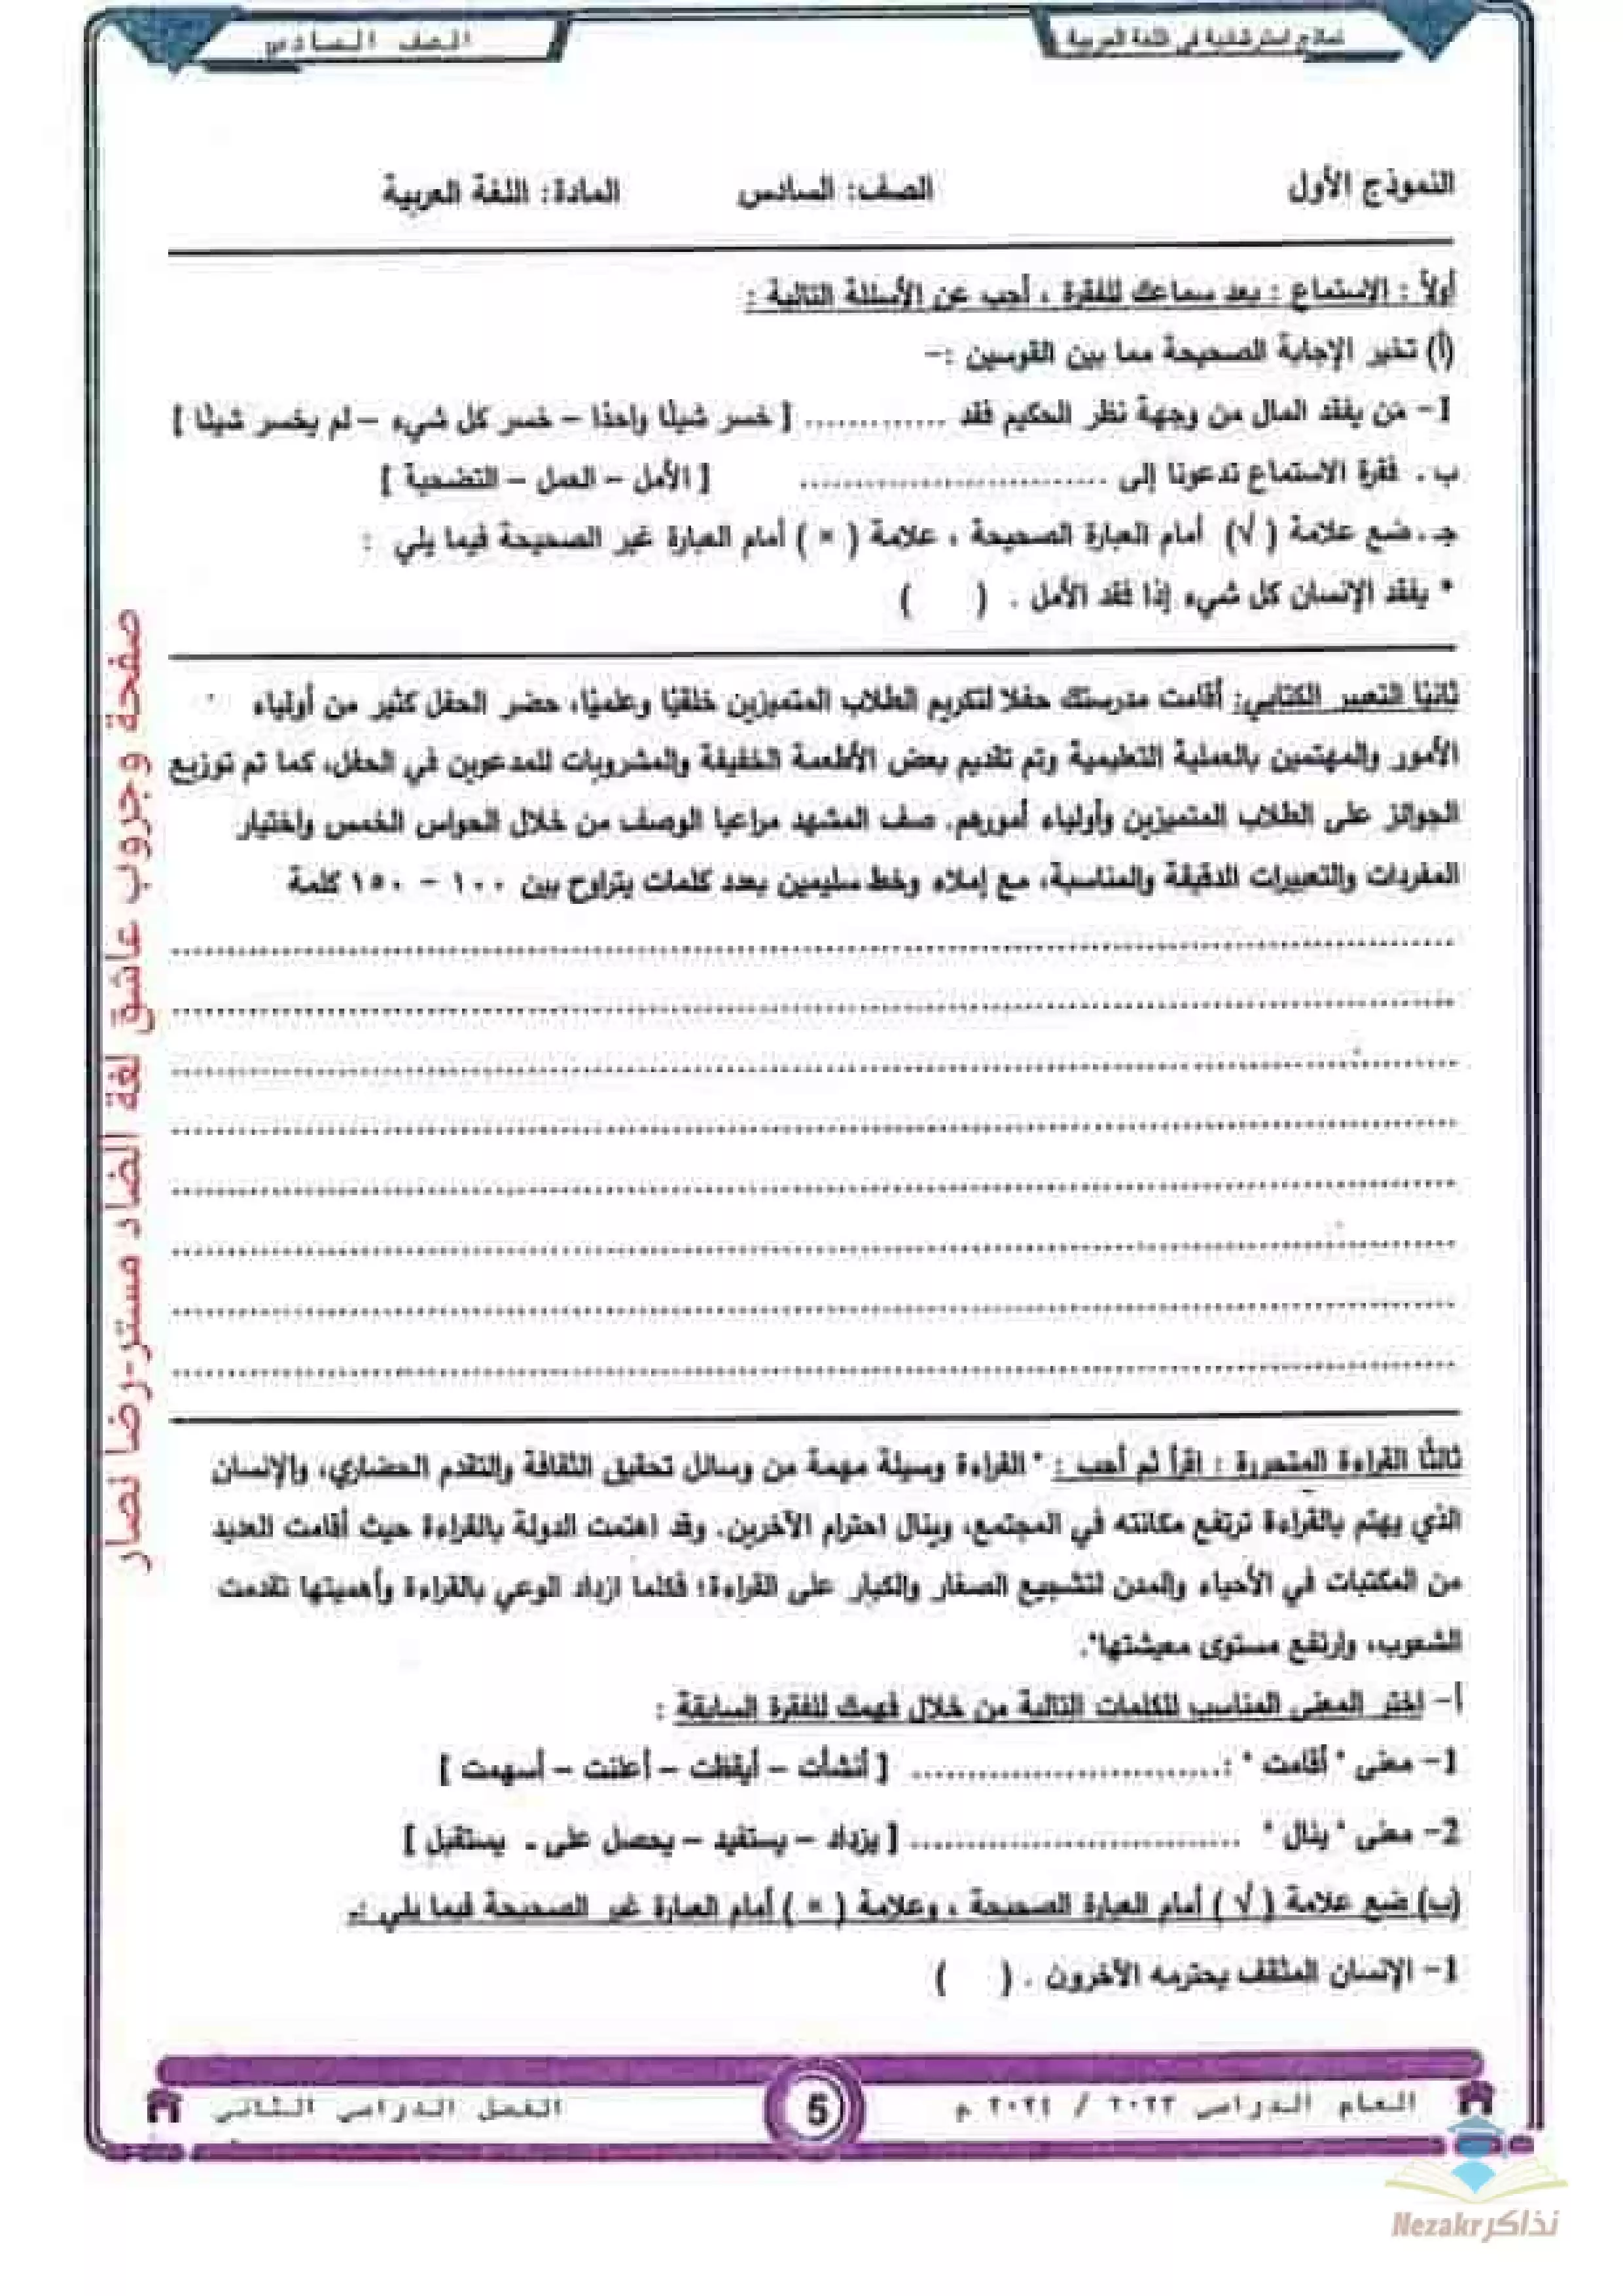 نماذج استرشادية في اللغة العربية
الصف السادس
النموذج الأول الصف: السادس المادة: اللغة العربية
أولاً : الاستماع : بعد سماعك للفقرة ، أجب عن الأسئلة التالية :
(أ) تخير الإجابة الصحيحة مما بين القوسين :-
1- من يفقد المال من وجهة نظر الحكيم فقد ............. [ خسر شيئًا واحدًا – خسر كل شيء – لم يخسر شيئًا ]
ب . فقرة الاستماع تدعونا إلى ............................ [ الأمل – العمل – التضحية ]
جـ . ضع علامة ( √ ) أمام العبارة الصحيحة ، علامة ( × ) أمام العبارة غير الصحيحة فيما يلي :
* يفقد الإنسان كل شيء إذا فقد الأمل . ( )
ثانيًا التعبير الكتابي: أقامت مدرستك حفلا لتكريم الطلاب المتميزين خلقيًا وعلميًا، حضر الحفل كثير من أولياء
الأمور والمهتمين بالعملية التعليمية وتم تقديم بعض الأطعمة الخفيفة والمشروبات للمدعوين في الحفل، كما تم توزيع
الجوائز على الطلاب المتميزين وأولياء أمورهم. صف المشهد مراعيا الوصف من خلال الحواس الخمس واختيار
المفردات والتعبيرات الدقيقة والمناسبة، مع إملاء وخط سليمين بعدد كلمات يتراوح بين ١٠٠ – ١٥٠ كلمة
ثالثًا القراءة المتحررة : اقرأ ثم أجب : " القراءة وسيلة مهمة من وسائل تحقيق الثقافة والتقدم الحضاري، والإنسان
الذي يهتم بالقراءة ترتفع مكانته في المجتمع، وينال احترام الآخرين. وقد اهتمت الدولة بالقراءة حيث أقامت العديد
من المكتبات في الأحياء والمدن لتشجيع الصغار والكبار على القراءة؛ فكلما ازداد الوعي بالقراءة وأهميتها تقدمت
الشعوب، وارتفع مستوى معيشتها".
أ- اختر المعنى المناسب للكلمات التالية من خلال فهمك للفقرة السابقة :
1- معنى " أقامت " :............................ [ أنشأت – أيقظت – أعلنت – أسهمت ]
2- معنى " ينال " .............................. [ يزداد – يستفيد – يحصل على - يستقبل ]
(ب) ضع علامة ( √ ) أمام العبارة الصحيحة ، وعلامة ( × ) أمام العبارة غير الصحيحة فيما يلي :-
1- الإنسان المثقف يحترمه الآخرون . ( )
صفحة وجروب عاشق لغة الضاد مستر-رضا نصار
العام الدراسي ٢٠٢٣ / ٢٠٢٤ م
5
الفصل الدراسي الثاني
نذاكر Nezakr